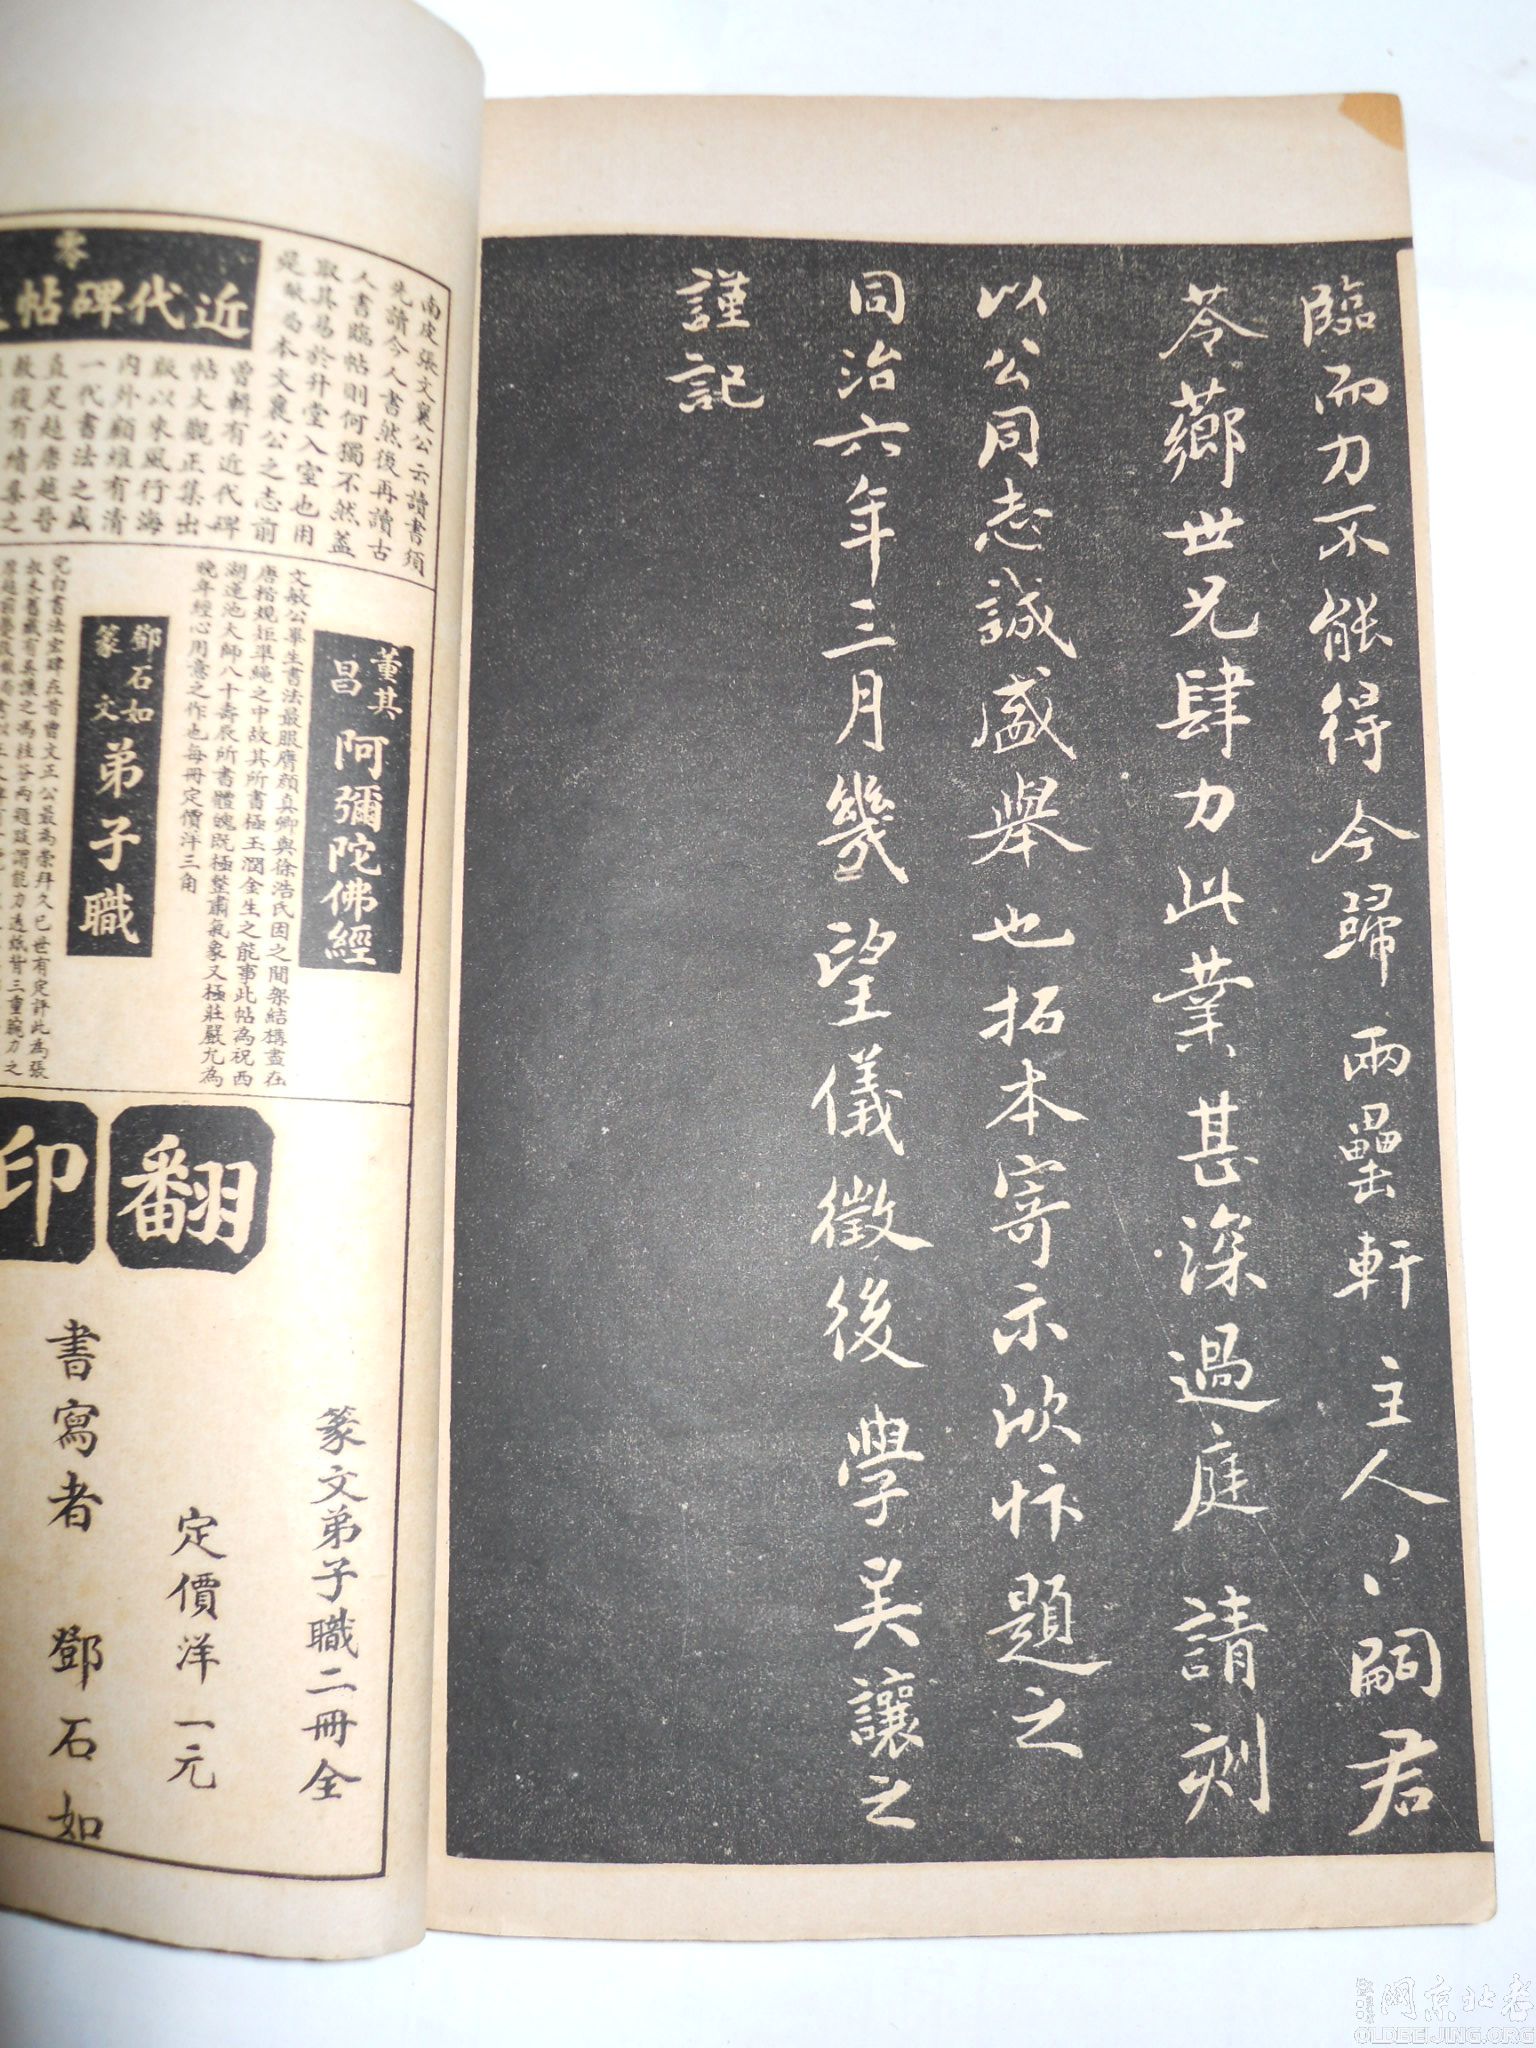 臨而力不能得今歸兩罍軒主人〻嗣君
苓薌世兄肆力此業甚深過庭請刻
以公同志誠盛舉也拓本寄示欣忭題之
同治六年三月幾望儀徵後學吴讓之
謹記
零
近代碑帖
南皮張文襄公云讀書須
先讀今人書然後再讀古
人書臨帖則何獨不然蓋
取其易於升堂入室也用
是敝局本文襄公之志前
曾輯有近代碑
帖大觀正集出
版以來風行海
內外顧雖有清
一代書法之盛
直足超唐越晉
董其昌
阿彌陀佛經
文敏公畢生書法最服膺顏真卿與徐浩氏因之間架結構盡在
唐楷規矩準繩之中故其所書極玉潤金生之能事此帖為祝西
湖蓮池大師八十壽辰所書體魄既極整肅氣象又極莊嚴尤為
晚年經心用意之作也每冊定價洋三角
鄧石如
篆文
弟子職
完白書法宏肆在昔曾文正公最為崇拜久已世有定評此為張
翻印
篆文弟子職二冊全
定價洋一元
書寫者 鄧石如
老北京网
OLDBEIJING.ORG